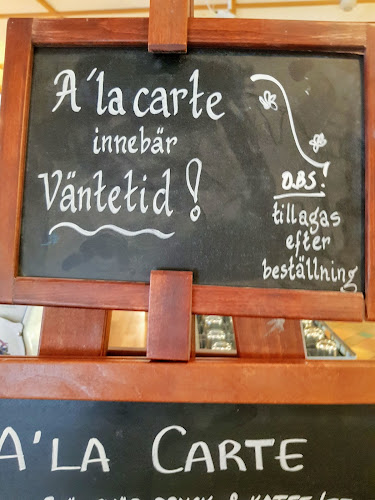 A´la carte
innebär
Väntetid!
OBS!
tillagas
efter
beställning
A´LA CARTE